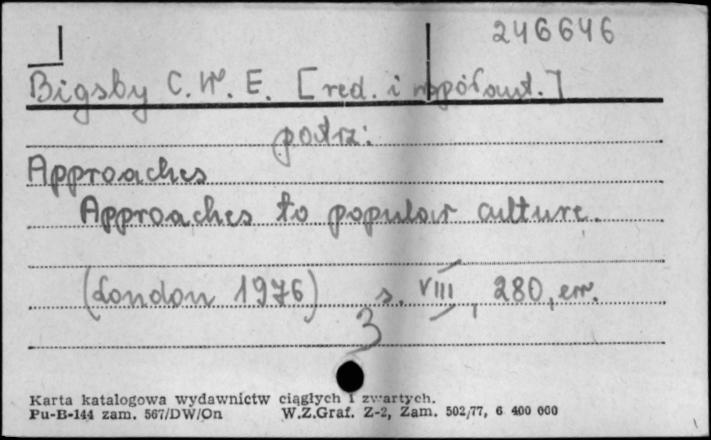 246646
Bigsby C. W. E. [red. i współaut.]
patrz:
Approaches
Approaches to popular culture.
(London 1976) s. VIII, 280, err.
3
Karta katalogowa wydawnictw ciągłych i zwartych.
Pu-B-144 zam. 567/DW/On W.Z.Graf. Z-2, Zam. 502/77, 6 400 000